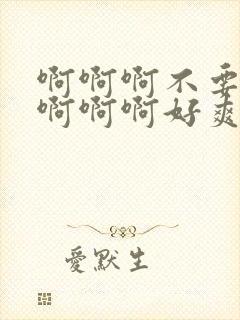 啊啊啊不要
啊啊啊好爽
爱默生